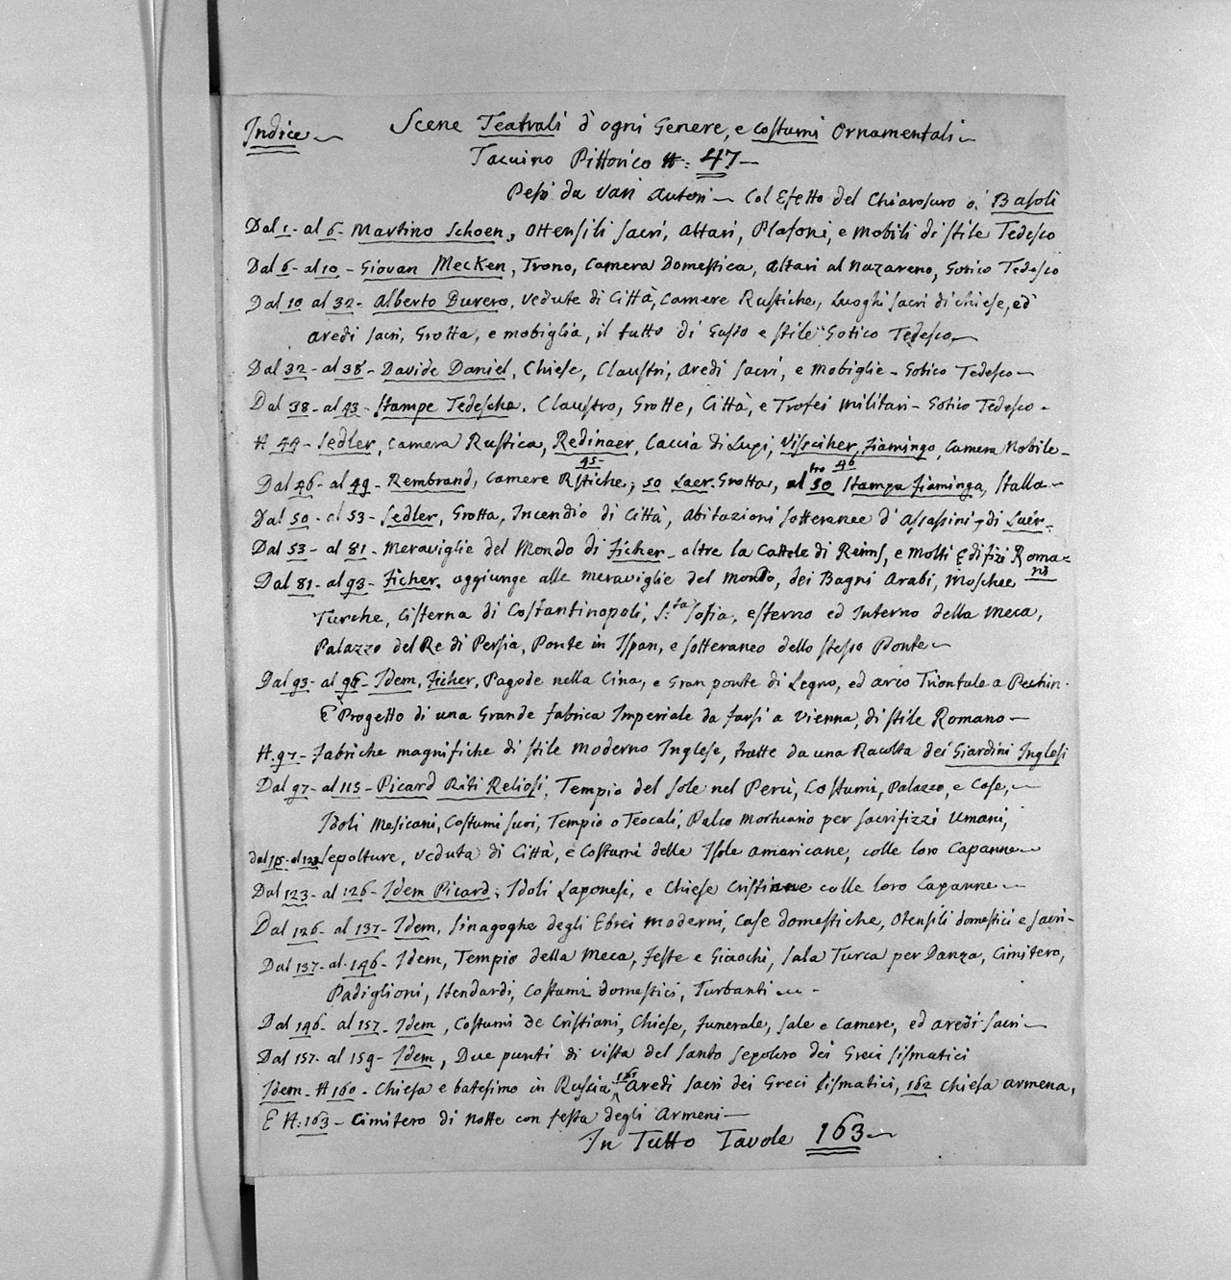 Indice
Scene Teatrali d'ogni Genere, e Costumi Ornamentali
Tacuino Pittorico N: 47
Presi da vari autori col Efetto del Chiaroscuro Basoli
Dal 1 al 6 Martino Schoen, Ottensili Sacri, Altari, Plafoni, e Mobili di Stile Tedesco
Dal 6 al 10 - Giovan Mecken, Trono, Camera Domestica, Altari al Nazareno, Gotico Tedesco
Dal 10 al 32 - Alberto Durero, vedute di Città, Camere Rustiche, Luoghi Sacri di chiese, ed
aredi Sacri, Grotta, e mobiglia, il tutto di Gusto e stile Gotico Tedesco
Dal 32 - al 38 - Davide Daniel, Chiese, Claustri, aredi Sacri, e mobiglie - Gotico Tedesco
Dal 38 - al 43 - Stampe Tedesche. Claustro, Grotte, Città, e Trofei militari - Gotico Tedesco -
N 44 - Sedler, Camera Rustica, Redinaer, Caccia di Lupi, Visscher, Fiamingo, Camera Nobile
45 46
Dal 46 - al 49 - Rembrand, Camere Rstiche; 50 Laer. Grotta, al 50 Stampa Fiaminga, Stalla
Dal 50 - al 53 - Sedler, Grotta, Incendio di Città, Abitazioni sotteranee d'assassini, di Laér
Dal 53 - al 81 - Meraviglie del Mondo di Ficher - altre la Cattele di Reims, e Molti Edifizi Roma=
ni
Dal 81 - al 93 - Ficher, aggiunge alle meraviglie del mondo, dei Bagni Arabi, Moschee
Turche, Cisterna di Costantinopoli, S:ta Sofia, esterno ed Interno della Meca,
Palazzo del Re di Persia, Ponte in Ispan, e sotteraneo dello stesso Ponte
Dal 93 - al 96 - Idem, Ficher, Pagode nella Cina, e Gran ponte di Legno, ed arco Trionfale a Pechin.
E Progetto di una Grande fabrica Imperiale da farsi a Vienna, di stile Romano -
N. 97 - Fabriche magnifiche di stile moderno Inglese, tratte da una Racolta dei Giardini Inglesi
Dal 97 - al 115 - Picard Riti Reliosi, Tempio del Sole nel Perù, Costumi, Palazzo, e Case,
Idoli Mesicani, Costumi suoi, Tempio o Teocali, Palco Mortuario per Sacrifizzi Umani,
dal 115 - al 123 Sepolture, veduta di Città, e Costumi delle Isole americane, colle loro Capanne
Dal 123 - al 126 - Idem Picard, Idoli Laponesi, e Chiese Cristiane colle loro Capanne
Dal 126 - al 137 - Idem, Sinagoghe degli Ebrei moderni, Case domestiche, Otensili domestici e sacri -
Dal 137 - al 146 - Idem, Tempio della Meca, Feste e Giochi, Sala Turca per Danza, Cimitero,
Padiglioni, Stendardi, Costumi domestici, Turbanti
Dal 146 - al 157 - Idem, Costumi de Cristiani, Chiese, Funerale, Sale e Camere, ed aredi Sacri
Dal 157 - al 159 - Idem, Due punti di vista del Santo Sepolcro dei Greci Sismatici
Idem - N 160 - Chiesa e batesimo in Russia, 161 aredi Sacri dei Greci Sismatici, 162 Chiesa armena,
E N: 163 - Cimitero di notte con festa degli Armeni -
In Tutto Tavole 163